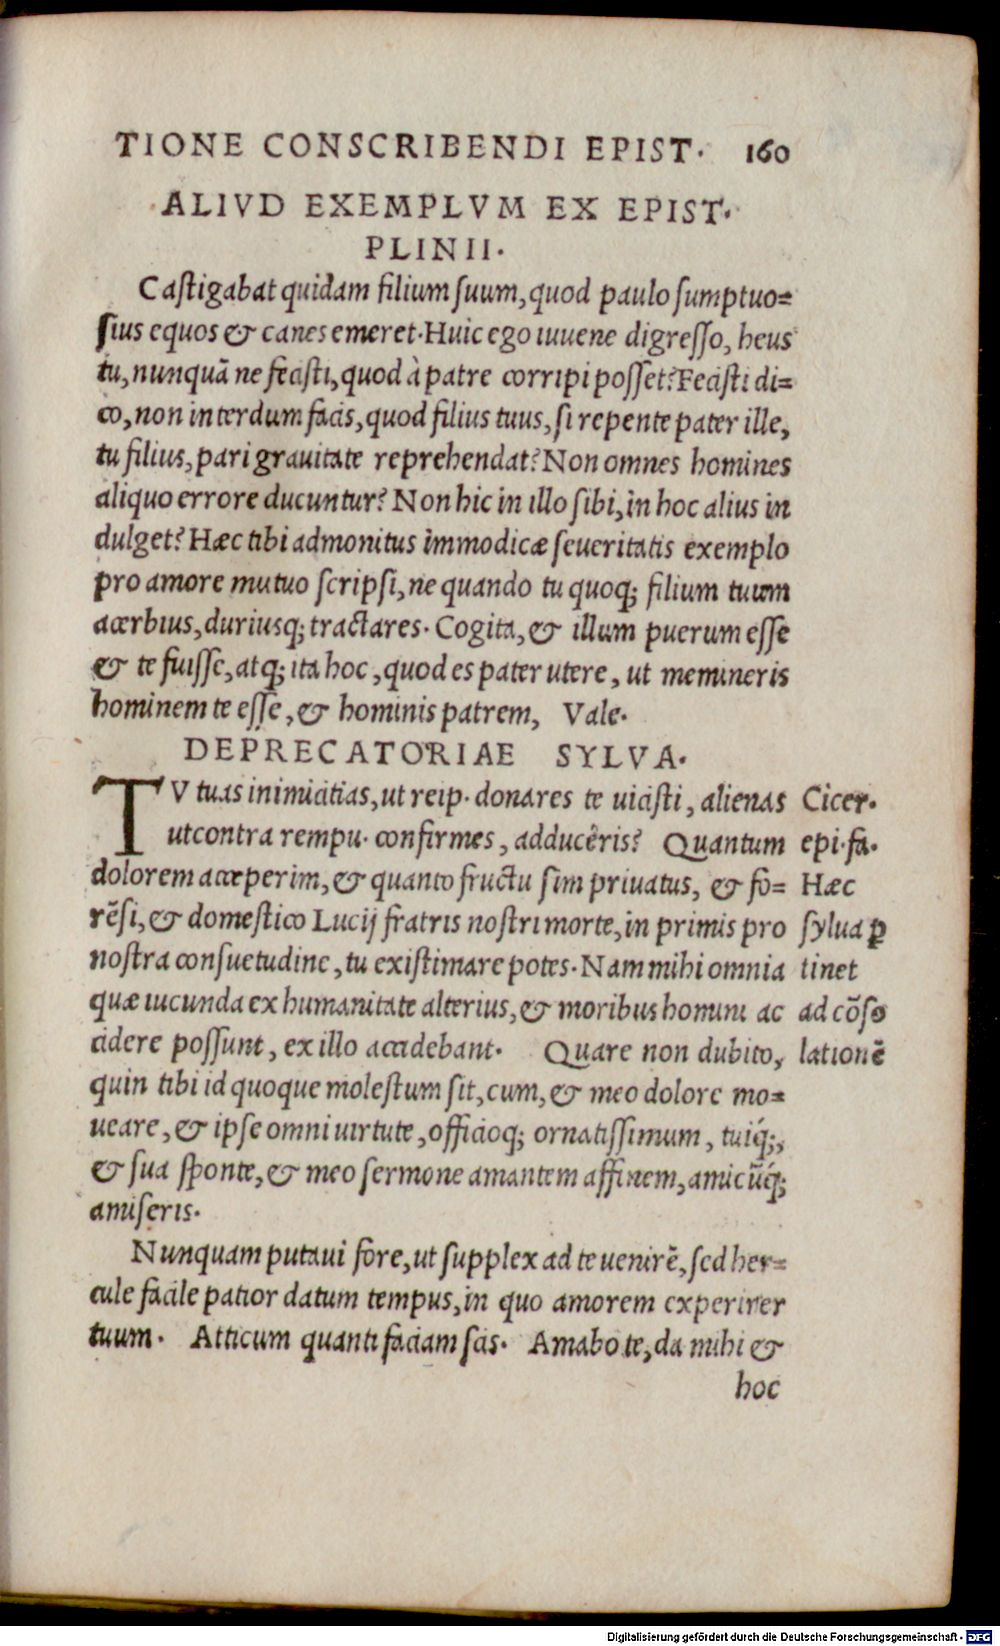 TIONE CONSCRIBENDI EPIST. 160
ALIVD EXEMPLVM EX EPIST.
PLINII.
Castigabat quidam filium suum, quod paulo sumptuo=
sius equos & canes emeret. Huic ego iuuene digresso, heus
tu, nunquā ne fecisti, quod à patre corripi posset? Fecisti di=
co, non interdum facis, quod filius tuus, si repente pater ille,
tu filius, pari grauitate reprehendat? Non omnes homines
aliquo errore ducuntur? Non hic in illo sibi, in hoc alius in
dulget? Hæc tibi admonitus immodicæ seueritatis exemplo
pro amore mutuo scripsi, ne quando tu quoq; filium tuum
acerbius, duriusq; tractares. Cogita, & illum puerum esse
& te fuisse, atq; ita hoc, quod es pater utere, ut memineris
hominem te esse, & hominis patrem, Vale.
DEPRECATORIAE SYLVA.
TV tuas inimicitias, ut reip. donares te uicisti, alienas
ut contra rempu. confirmes, adducêris? Quantum
dolorem acceperim, & quanto fructu sim priuatus, & fo=
rēsi, & domestico Lucij fratris nostri morte, in primis pro
nostra consuetudine, tu existimare potes. Nam mihi omnia
quæ iucunda ex humanitate alterius, & moribus homini ac
cidere possunt, ex illo accidebant. Quare non dubito,
quin tibi id quoque molestum sit, cum, & meo dolore mo=
ueare, & ipse omni uirtute, officioq; ornatissimum, tuiq́;,
& sua sponte, & meo sermone amantem affinem, amicūq́;
amiseris.
Nunquam putaui fore, ut supplex ad te uenirē, sed her=
cule facile patior datum tempus, in quo amorem experirer
tuum. Atticum quanti faciam scis. Amabo te, da mihi &
hoc
Cicer.
epi. fa.
Hæc
sylua ꝑ
tinet
ad cōso
lationē
Digitalisierung gefördert durch die Deutsche Forschungsgemeinschaft - DFG